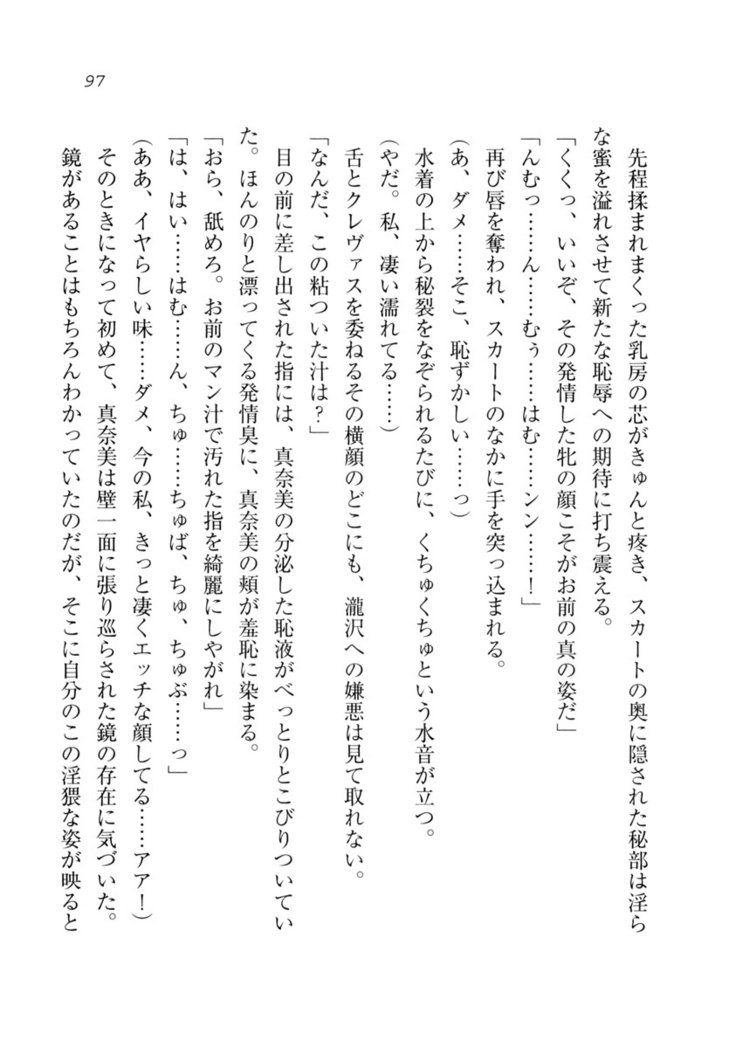 97
先程揉まれまくった乳房の芯がきゅんと疼き、スカートの奥に隠された秘部は淫ら
な蜜を溢れさせて新たな恥辱への期待に打ち震える。
「くくっ、いいぞ、その発情した牝の顔こそがお前の真の姿だ」
「んむっ……ん……むぅ……はむ……ンン……！」
再び唇を奪われ、スカートのなかに手を突っ込まれる。
(あ、ダメ……そこ、恥ずかしい……っ)
水着の上から秘裂をなぞられるたびに、くちゅくちゅという水音が立つ。
(やだ。私、凄い濡れてる……)
舌とクレヴァスを委ねるその横顔のどこにも、瀧沢への嫌悪は見て取れない。
「なんだ、この粘ついた汁は？」
目の前に差し出された指には、真奈美の分泌した恥液がべっとりとこびりついてい
た。ほんのりと漂ってくる発情臭に、真奈美の頬が羞恥に染まる。
「おら、舐めろ。お前のマン汁で汚れた指を綺麗にしやがれ」
「は、はい……はむ……ん、ちゅ……ちゅば、ちゅ、ちゅぶ……っ」
(ああ、イヤらしい味……ダメ、今の私、きっと凄くエッチな顔してる……アア！)
そのときになって初めて、真奈美は壁一面に張り巡らされた鏡の存在に気づいた。
鏡があることはもちろんわかっていたのだが、そこに自分のこの淫猥な姿が映ると